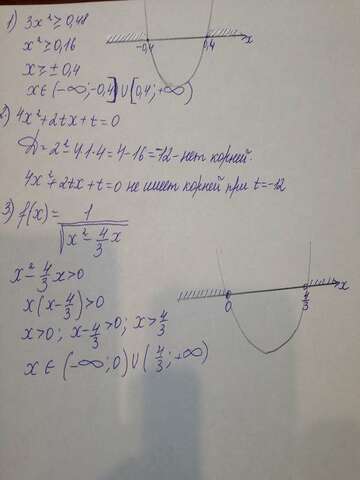 1) 3x² ≥ 0,48
x² ≥ 0,16
x ≥ ± 0,4
x ∈ (-∞; -0,4] ∪ [0,4; +∞)
-0,4 0,4 x
2) 4x² + 2tx + t = 0
D = 2² - 4·1·4 = 4 - 16 = -12 - нет корней.
4x² + 2tx + t = 0 не имеет корней при t = -12
3) f(x) = 1/√(x² - 4/3 x)
x² - 4/3 x > 0
x(x - 4/3) > 0
x > 0; x - 4/3 > 0; x > 4/3
x ∈ (-∞; 0) ∪ (4/3; +∞)
0 4/3 x